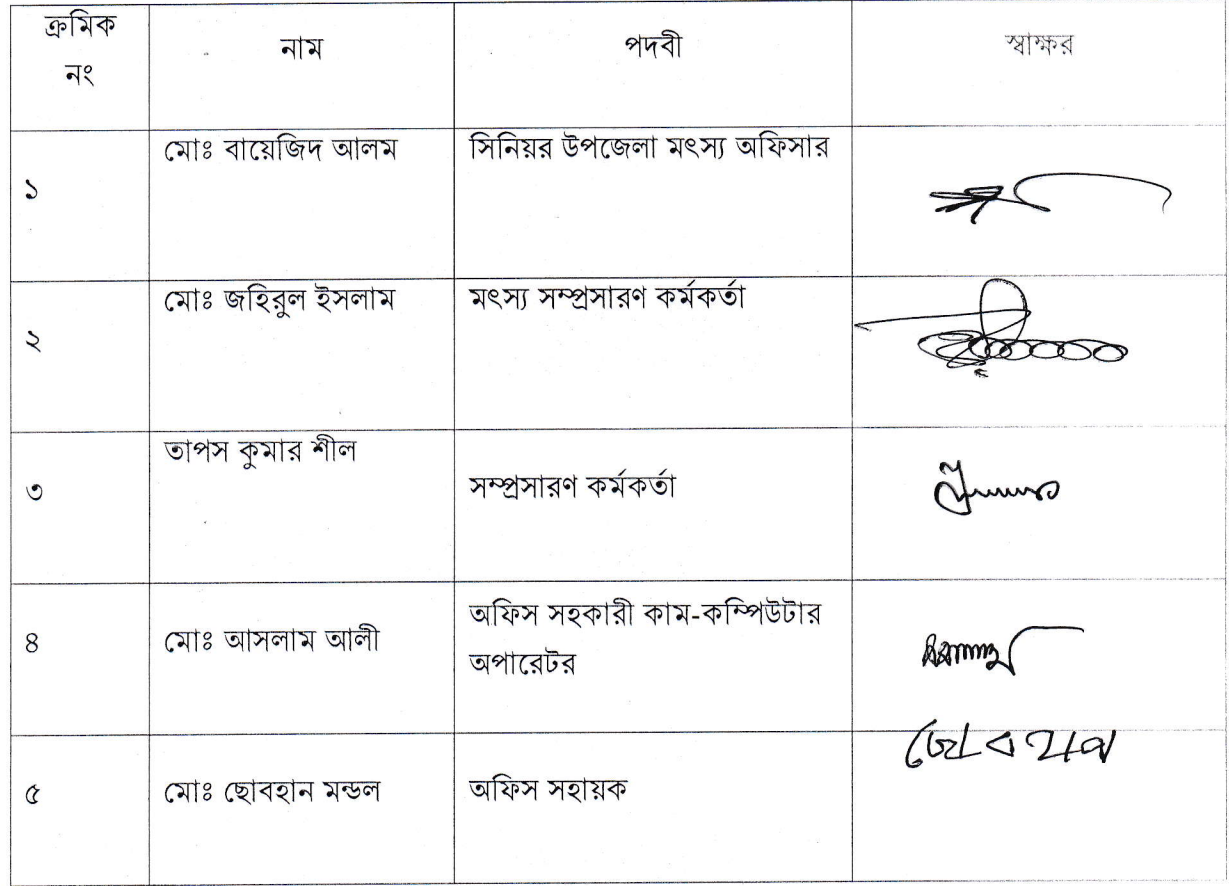 ক্রমিক
নং
নাম
পদবী
স্বাক্ষর
১
মোঃ বায়েজিদ আলম
সিনিয়র উপজেলা মৎস্য অফিসার
২
মোঃ জহিরুল ইসলাম
মৎস্য সম্প্রসারণ কর্মকর্তা
৩
তাপস কুমার শীল
সম্প্রসারণ কর্মকর্তা
৪
মোঃ আসলাম আলী
অফিস সহকারী কাম-কম্পিউটার
অপারেটর
৫
মোঃ ছোবহান মন্ডল
অফিস সহায়ক